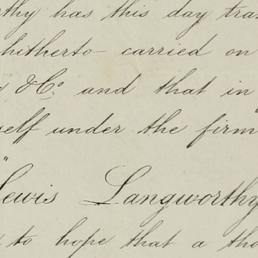 thy has this day tra
hitherto carried on
& Co. and that in
self under the firm
"Lewis Langworthy
to hope that a tho